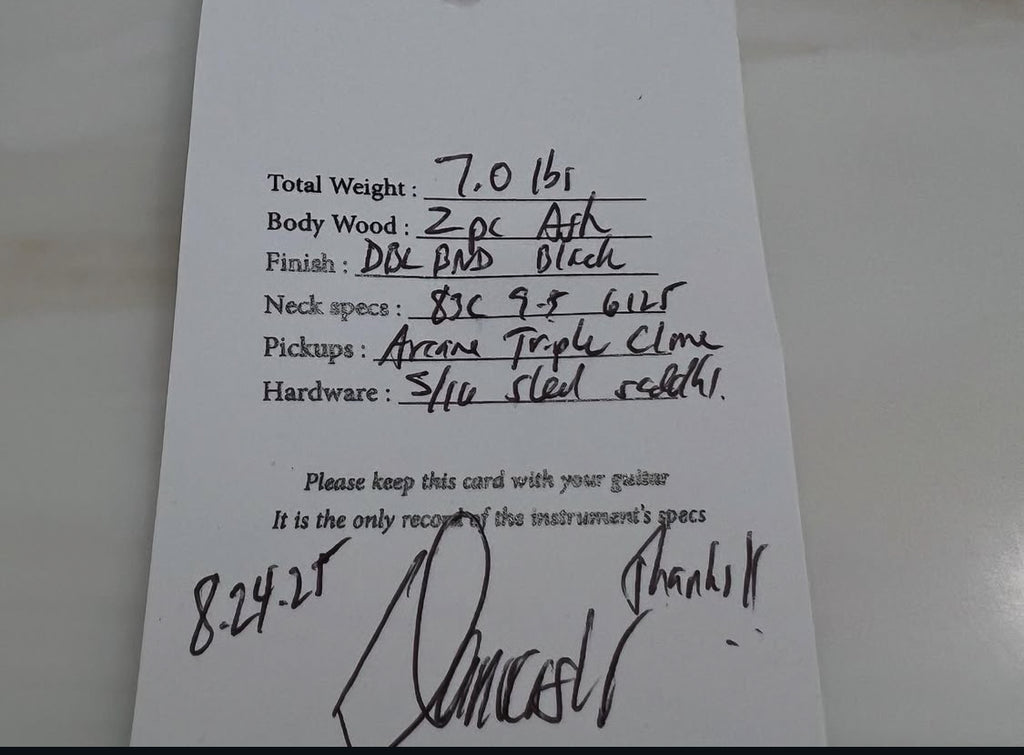 Total Weight : 7.0 lbs
Body Wood : 2 pc Ash
Finish : DBL BND Black
Neck specs : 83C 9-5 6125
Pickups : Arcane Triple Clone
Hardware : 5/16 steel saddles.
Please keep this card with your guitar
It is the only record of the instrument's specs
Thanks!!
8.24.25